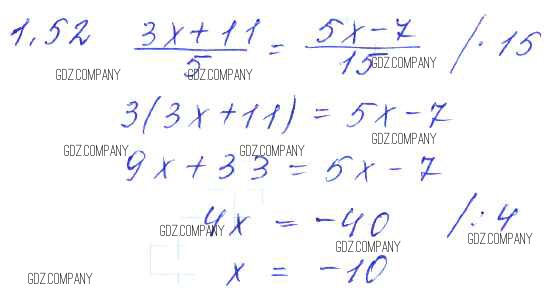 1.52 (3x+11)/5 = (5x-7)/15 /·15
GDZ.COMPANY GDZ.COMPANY GDZ.COMPANY
3(3x+11) = 5x-7
GDZ.COMPANY GDZ.COMPANY GDZ.COMPANY
9x+33 = 5x-7
4x = -40 /:4
GDZ.COMPANY GDZ.COMPANY GDZ.COMPANY
x = -10
GDZ.COMPANY